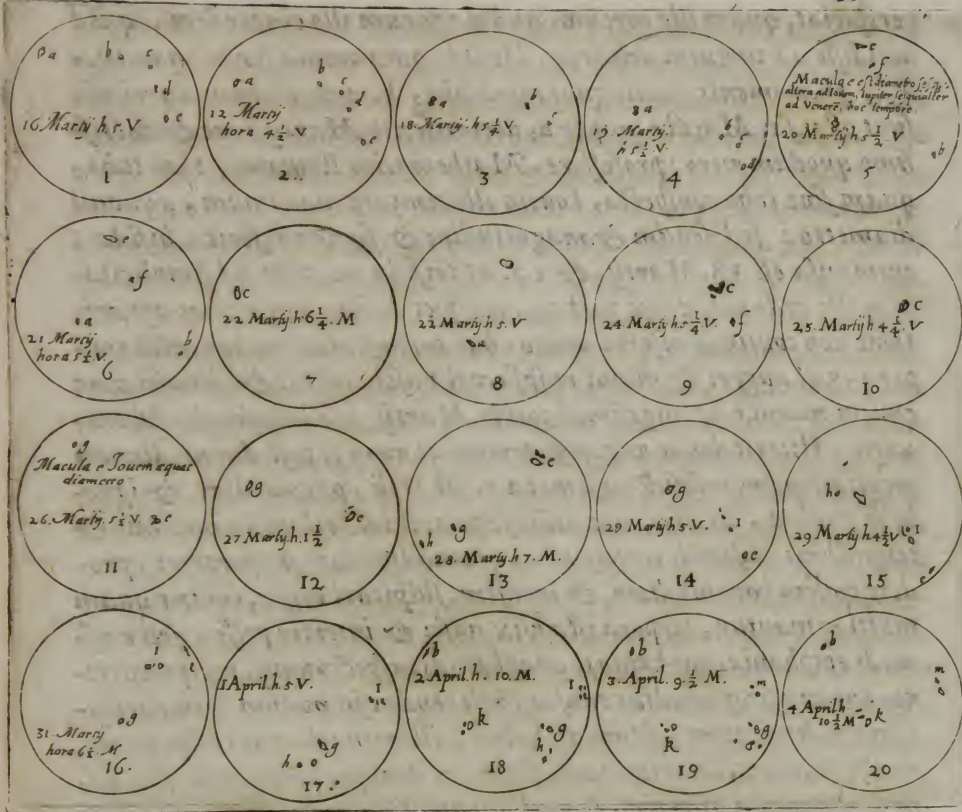 a b c
d
16 Martij h. 5. V. e
1
a b c
d
12 Martij
hora 4 1/2 V. e
2
a b
18. Martij. h 5 1/4 V. c
3
a
19. Martij. b
h 5 1/2 V. c
d
4
e
f
Macula e est diametro
altera ad Iouem, Iupiter sesquialter
ad Venerē, hoc tempore.
20 Martij h 5 1/2 V
b
5
e
f
a
21 Martij b
hora 5 1/2 V.
6
c
22 Martij. h. 6 1/4. M
7
22 Martij h 5. V
a
8
c
24 Martij. h. 5 1/4 V. f
9
c
25. Martij h 4 1/4. V
10
g
Macula e Iouem aequat
diametro
26. Martij. 5 1/2 V. e
11
g
27 Martij. h. 1 1/2 e
12
e
h g
28. Martij h 7. M.
13
g
29 Martij h 5. V. i
e
14
h
29 Martij h 4 1/2 V i
e
15
i e
g
31. Martij
hora 6 1/2. M
16.
1 April. h. 5 V. i
g
h
17.
b
2. April. h. 10. M. i
k g
h
18
b
3. April. 9. 1/2 M. m
k g
19
b
m
4 April h
10 1/2 M k
20